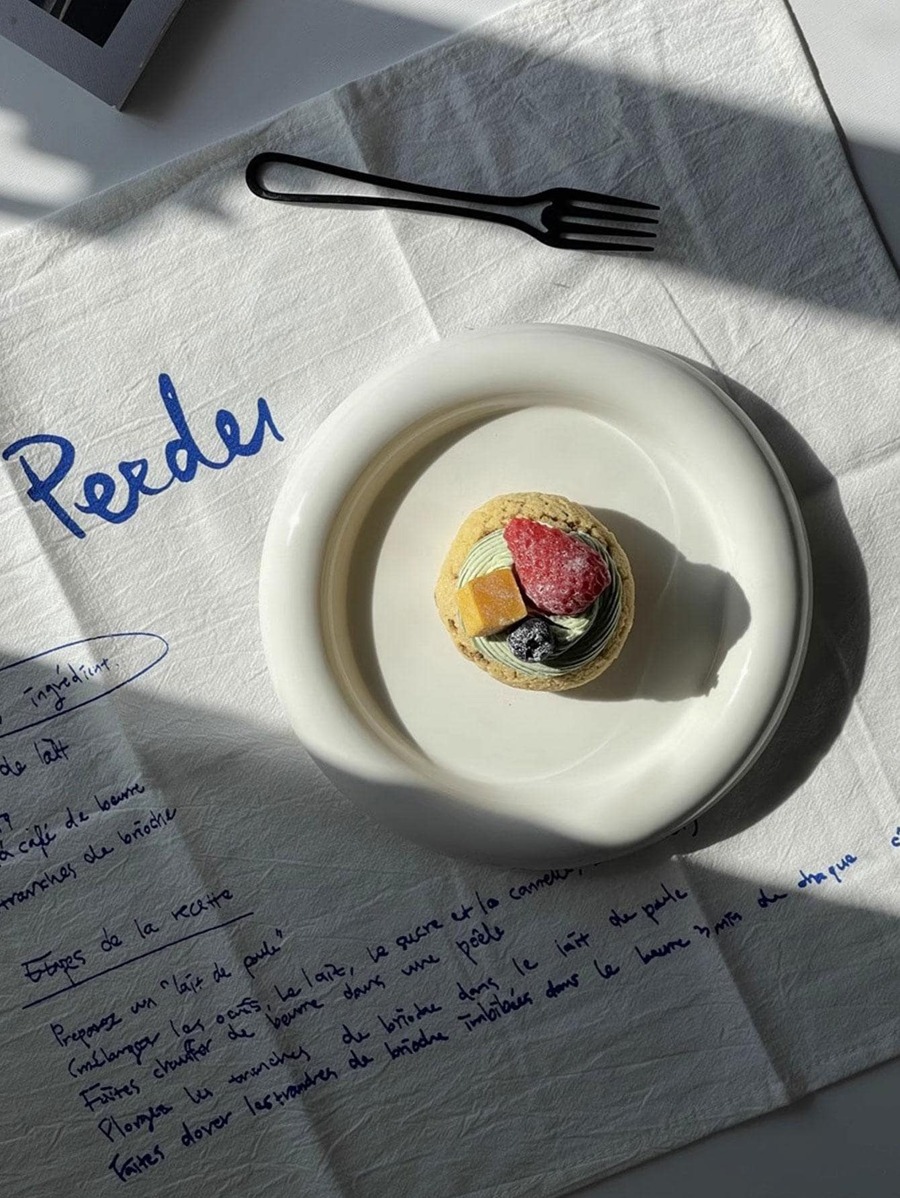 Perdu
ingrédient.
de lait
à café de beurre
tranches de brioche
Etapes de la recette
Preparez un "lait de poule"
(mélanger les oeufs, le lait, le sucre et la cannelle,
Faites chauffer de beurre dans une poêle
Plongez les tranches de brioche dans le lait de poule
Faites dorer les tranches de brioche imbibées dans le beurre 3 mis de chaque